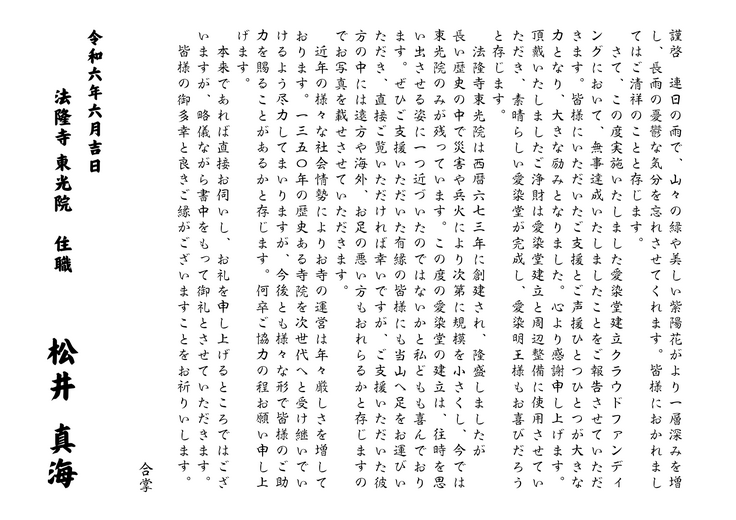 謹啓　連日の雨で、山々の緑や美しい紫陽花がより一層深みを増
し、長雨の憂鬱な気分を忘れさせてくれます。皆様におかれまし
てはご清祥のことと存じます。
さて、この度実施いたしました愛染堂建立クラウドファンディ
ングにおいて、無事達成いたしましたことをご報告させていただ
きます。皆様にいただいたご支援とご声援ひとつひとつが大きな
力となり、大きな励みとなりました。心より感謝申し上げます。
頂戴いたしましたご浄財は愛染堂建立と周辺整備に使用させてい
ただき、素晴らしい愛染堂が完成し、愛染明王様もお喜びだろう
と存じます。
法隆寺東光院は西暦六七三年に創建され、隆盛しましたが
長い歴史の中で災害や兵火により次第に規模を小さくし、今では
東光院のみが残っています。この度の愛染堂の建立は、往時を思
い出させる姿に一つ近づいたのではないかと私どもも喜んでおり
ます。ぜひご支援いただいた有縁の皆様にも当山へ足をお運びい
ただき、直接ご覧いただければ幸いですが、ご支援いただいた彼
方の中には遠方や海外、お足の悪い方もおれらるかと存じますの
でお写真を載せさせていただきます。
近年の様々な社会情勢によりお寺の運営は年々厳しさを増して
おります。一三五〇年の歴史ある寺院を次世代へと受け継いでい
けるよう尽力してまいりますが、今後とも様々な形で皆様のご助
力を賜ることがあるかと存じます。何卒ご協力の程お願い申し上
げます。
本来であれば直接お伺いし、お礼を申し上げるところではござ
いますが、略儀ながら書中をもって御礼とさせていただきます。
皆様の御多幸と良きご縁がございますことをお祈りいします。
合掌
令和六年六月吉日
法隆寺 東光院　住職
松井　真海